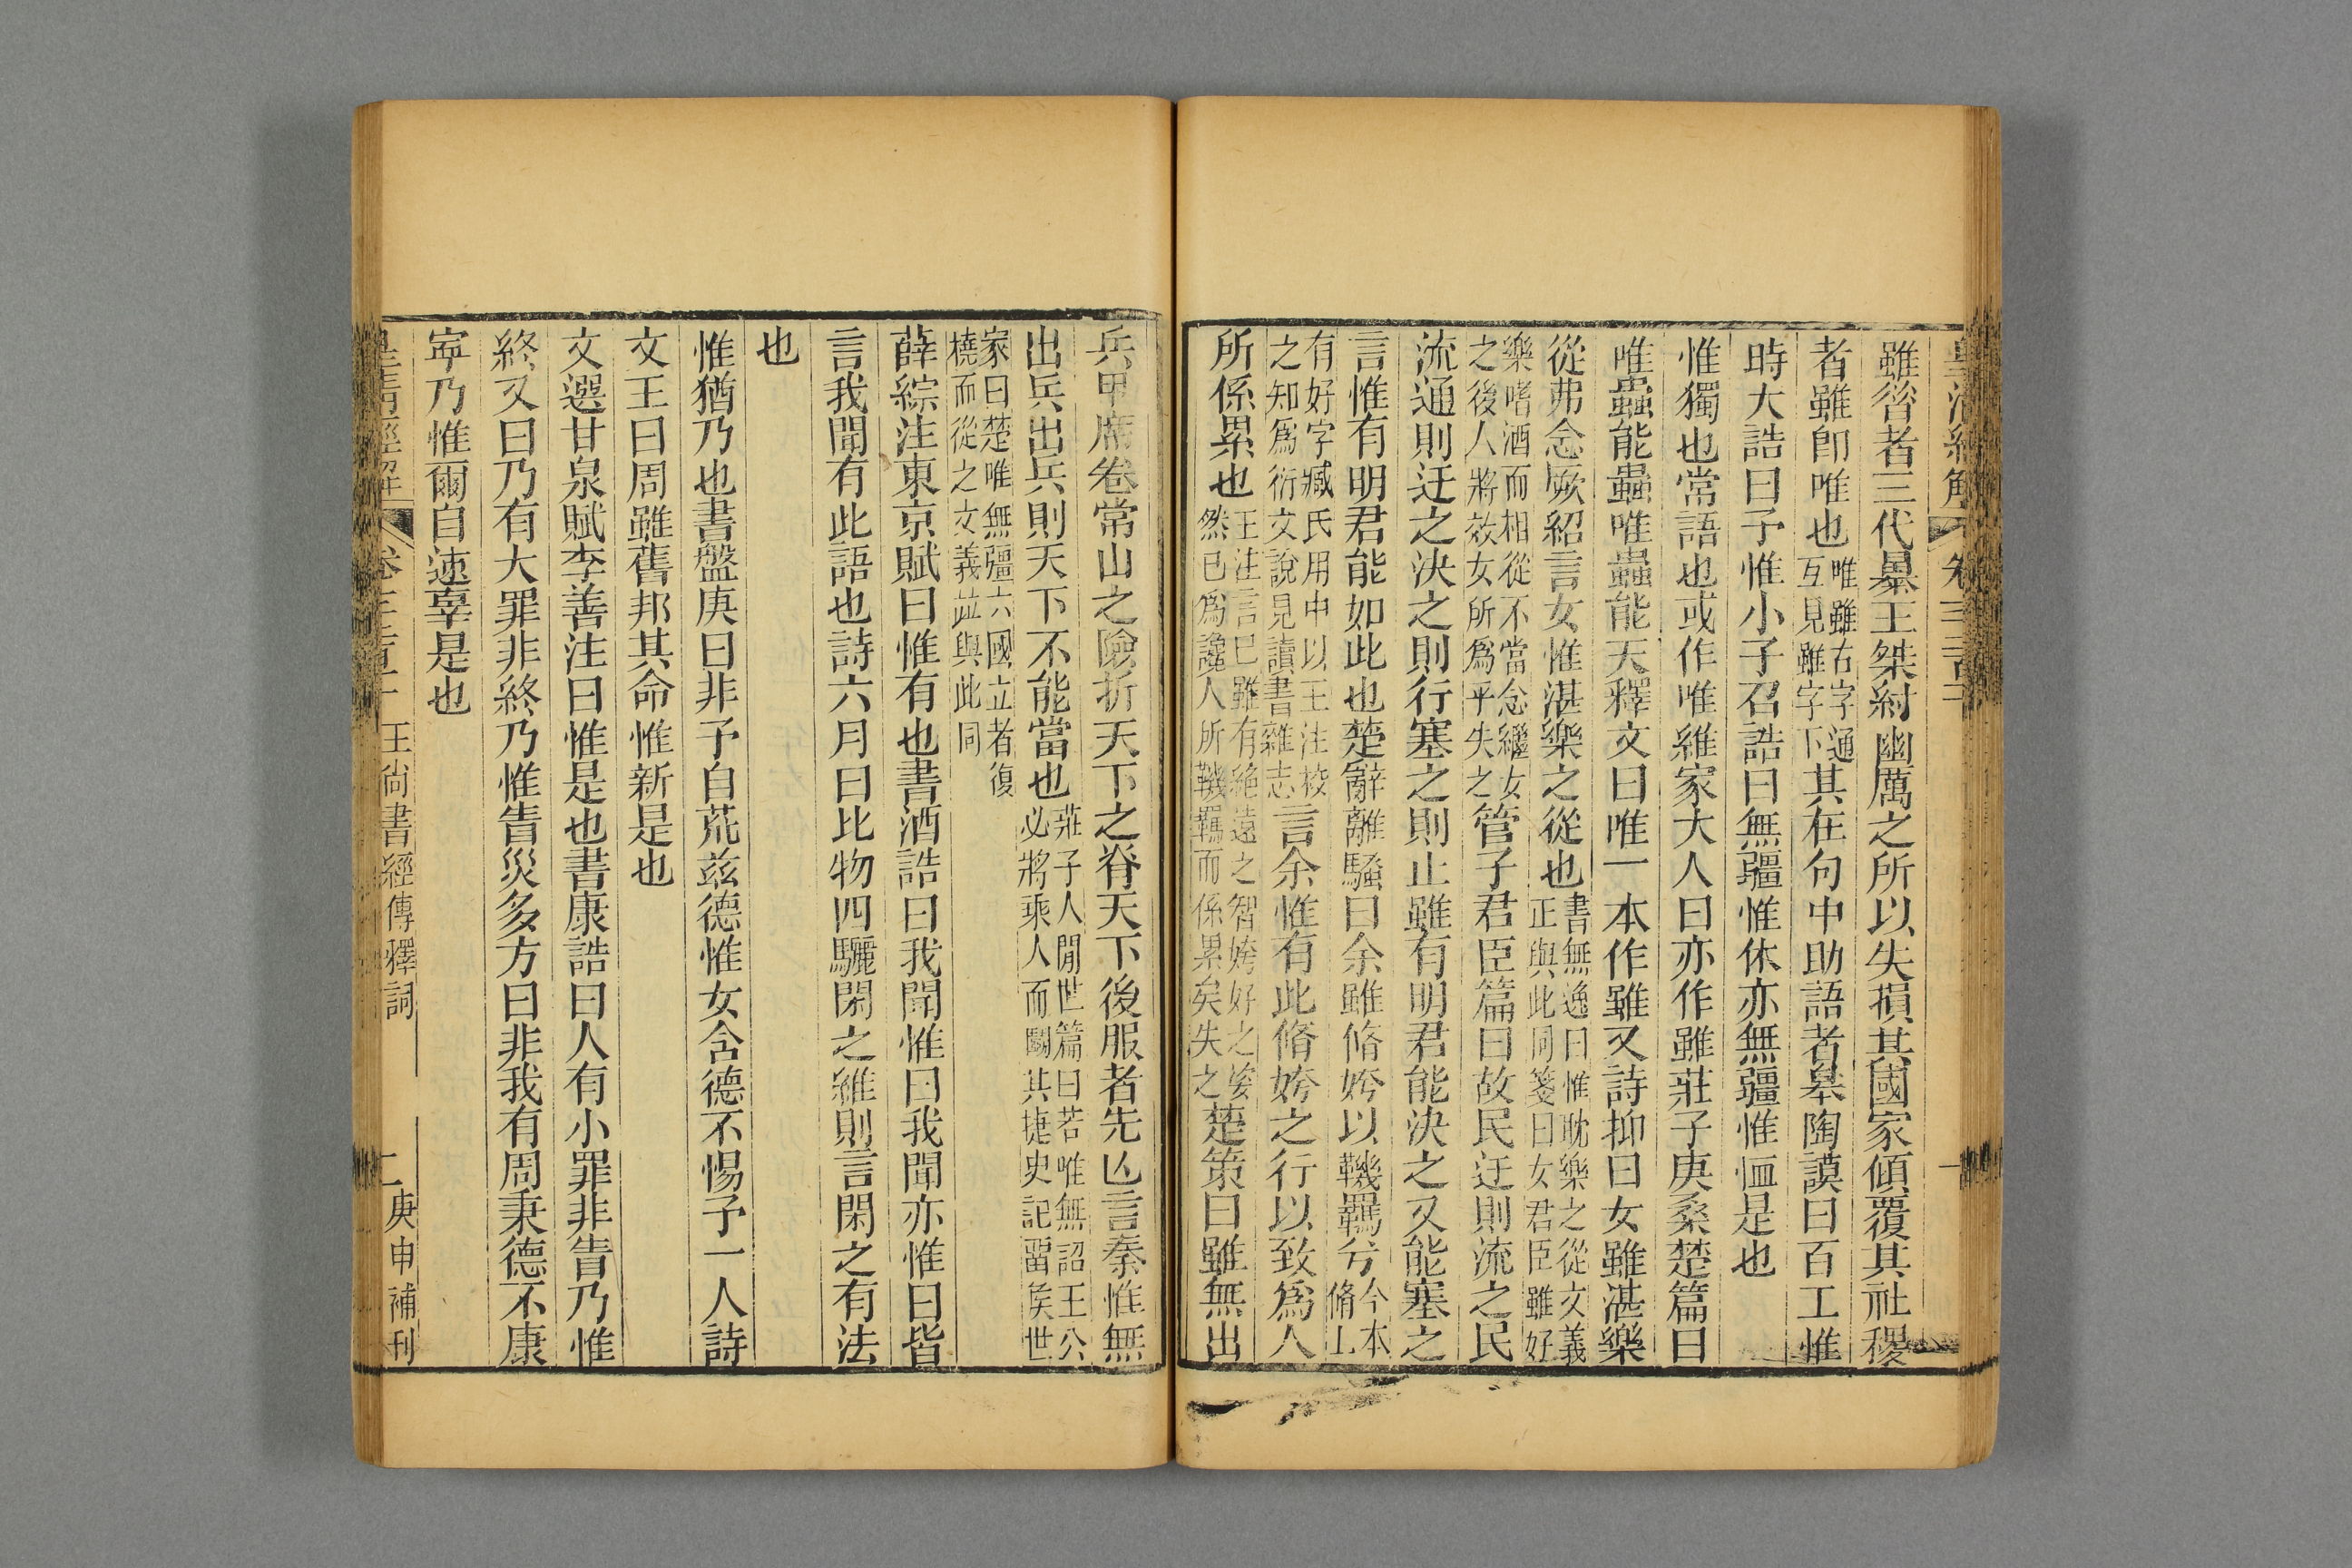 雖昝者三代㬥王桀紂幽厲之所以失損其國家傾覆其社稷
者雖卽唯也唯雖古字通互見雖字下其在句中助語者皋陶謨曰百工惟
時大誥曰予惟小子召誥曰無疆惟休亦無疆惟恤是也
惟獨也常語也或作唯維家大人曰亦作雖莊子庚桑楚篇曰
唯蟲能蟲唯蟲能天釋文曰唯一本作雖又詩抑曰女雖湛樂
從弗念厥紹言女惟湛樂之從也書無逸曰惟耽樂之從文義正與此同箋曰女君臣雖好
樂嗜酒而相從不當念繼女之後人將效女所爲乎失之管子君臣篇曰故民迂則流之民
流通則迂之決之則行塞之則止雖有明君能決之又能塞之
言惟有明君能如此也楚辭離騷曰余雖脩姱以鞿羈兮今本脩上
有好字臧氏用中以王注校之知爲衍文說見讀書雜志言余惟有此脩姱之行以致爲人
所係累也王注言已雖有絶遠之智姱好之姿然已爲讒人所鞿羈而係累矣失之楚策曰雖無出
兵甲席卷常山之險折天下之脊天下後服者先亾言秦惟無
出兵出兵則天下不能當也莊子人閒世篇曰若唯無詔王公必將乘人而鬭其捷史記畱矦世
家曰楚唯無疆六國立者復橈而從之文義竝與此同
薛綜注東京賦曰惟有也書酒誥曰我聞惟曰我聞亦惟曰皆
言我聞有此語也詩六月曰比物四驪閑之維則言閑之有法
也
惟猶乃也書盤庚曰非予自荒茲德惟女含德不惕予一人詩
文王曰周雖舊邦其命惟新是也
文選甘泉賦李善注曰惟是也書康誥曰人有小罪非眚乃惟
終又曰乃有大罪非終乃惟眚災多方曰非我有周秉德不康
寍乃惟爾自速辜是也
王尙書經傳釋詞
二
庚申補刊